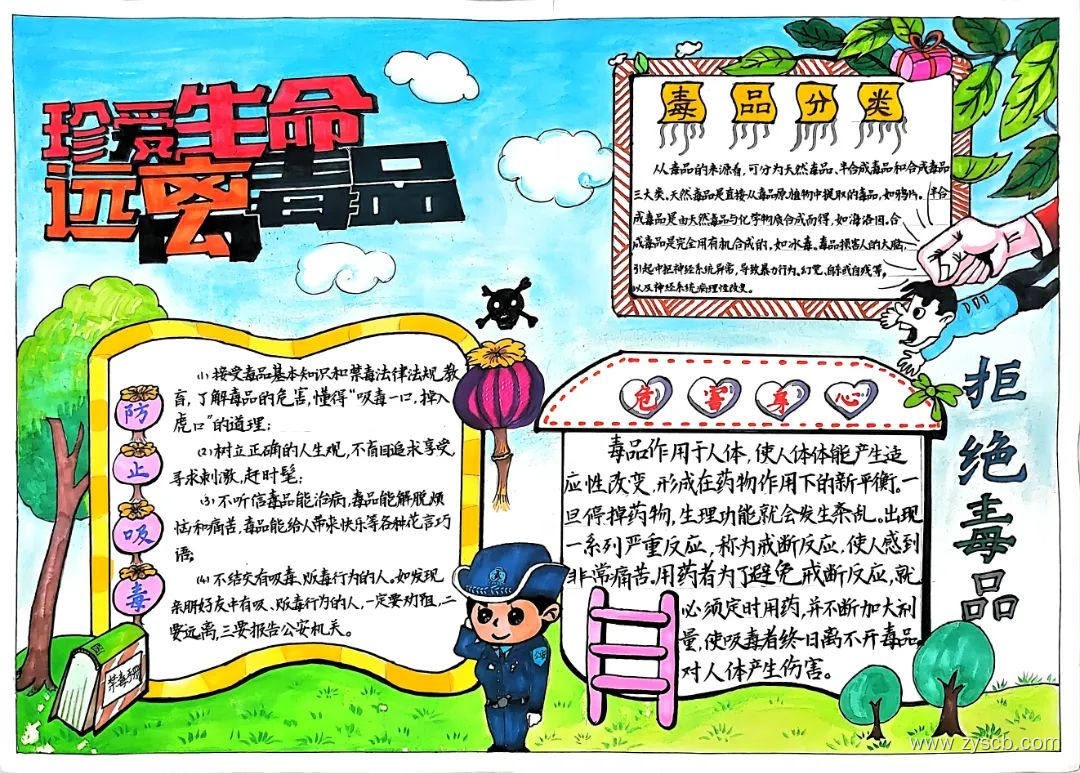 珍爱生命
远离毒品
毒品分类
从毒品的来源看，可分为天然毒品、半合成毒品和合成毒品
三大类。天然毒品是直接从毒品原植物中提取的毒品，如鸦片。半合
成毒品是由天然毒品与化学物质合成而得，如海洛因。合
成毒品是完全用有机合成的，如冰毒。毒品损害人的大脑，
引起中枢神经系统异常，导致暴力行为、幻觉、自杀或自残等，
以及神经系统病理性改变。
防止吸毒
(1)接受毒品基本知识和禁毒法律法规教
育，了解毒品的危害，懂得“吸毒一口，掉入
虎口”的道理；
(2)树立正确的人生观，不盲目追求享受，
寻求刺激，赶时髦；
(3)不听信毒品能治病，毒品能解脱烦
恼和痛苦，毒品能给人带来快乐等各种花言巧
语。
(4)不结交有吸毒、贩毒行为的人。如发现
亲朋好友中有吸、贩毒行为的人，一定要劝阻，二
要远离，三要报告公安机关。
禁毒手册
危害身心
毒品作用于人体，使人体体能产生适
应性改变，形成在药物作用下的新平衡。一
旦停掉药物，生理功能就会发生紊乱。出现
一系列严重反应，称为戒断反应，使人感到
非常痛苦。用药者为了避免戒断反应，就
必须定时用药，并不断加大剂
量，使吸毒者终日离不开毒品。
对人体产生伤害。
拒绝毒品
www.zyscb.com